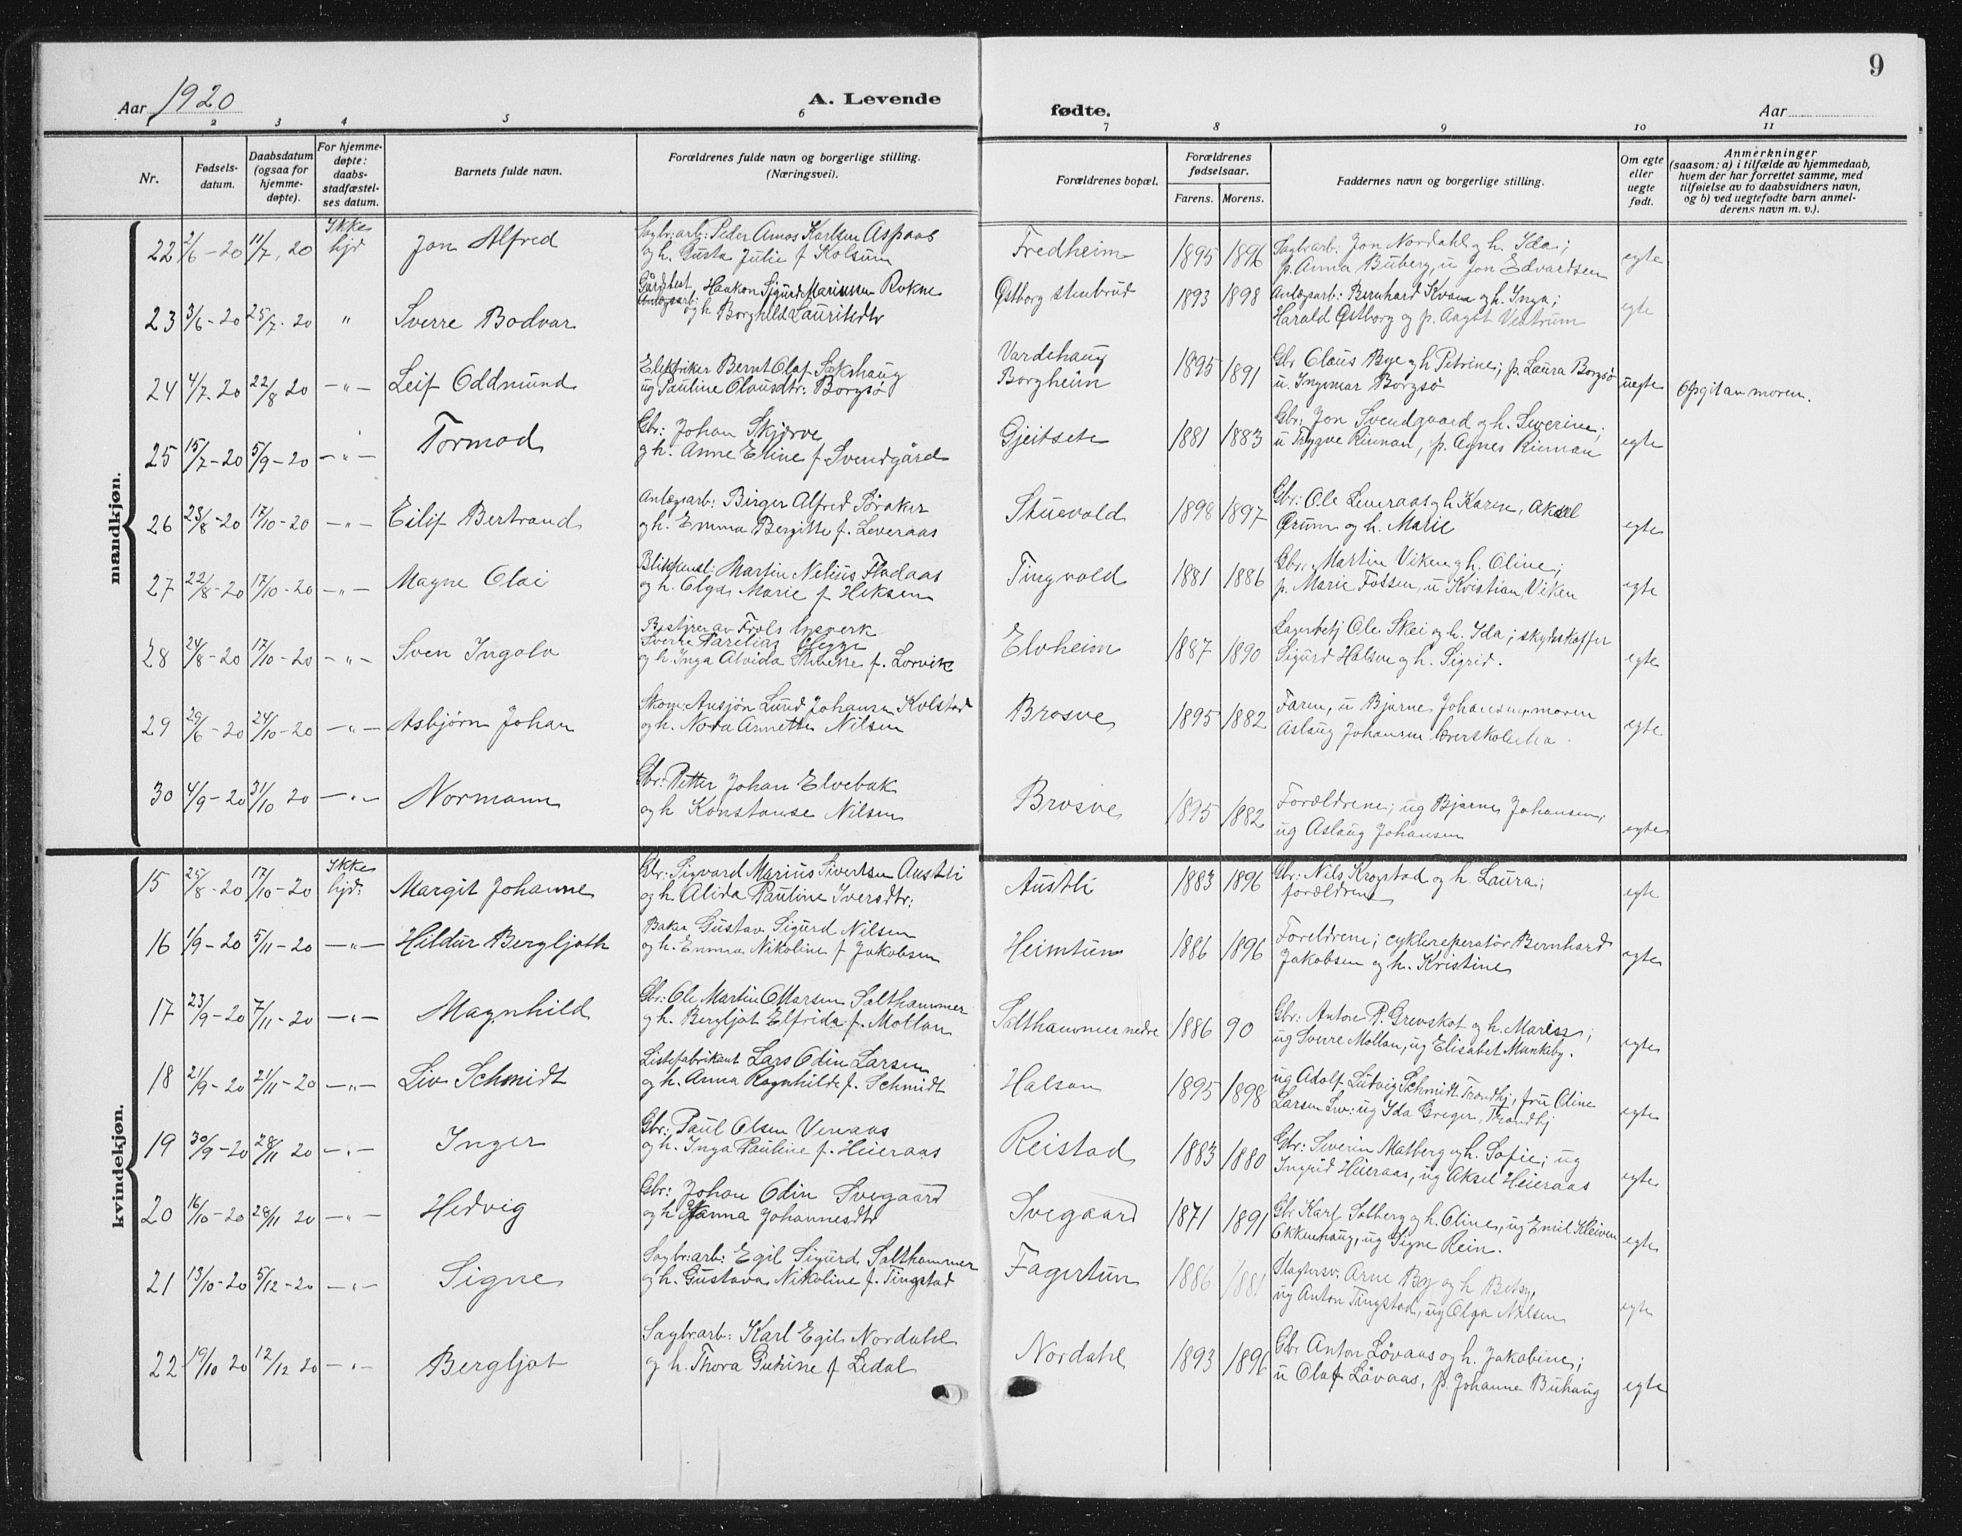 9
Aar 1920
A. Levende
fødte.
Aar
1 2 3 4 5 6 7 8 9 10 11
Nr.
Fødsels-
datum.
Daabsdatum
(ogsaa for
hjemme-
døpte).
For hjemme-
døpte:
daabs-
stadfæstel-
ses datum.
Barnets fulde navn.
Forældrenes fulde navn og borgerlige stilling.
(Næringsvei).
Forældrenes bopæl.
Forældrenes
fødselsaar.
Farens. Morens.
Faddernes navn og borgerlige stilling.
Om egte
eller
uegte
født.
Anmerkninger
(saasom: a) i tilfælde av hjemmedaab,
hvem der har forrettet samme, med
tilføielse av to daabsvidners navn,
og b) ved uegtefødt barn anmel-
derens navn m. v.).
mandkjøn.
22 2/6-20 11/7, 20 Ikke hjd Jon Alfred
Sagbr:arb: Peder Amos Karlsen Aspaas
og h. Gusta Julie f Kolsum
Fredheim 1895 1896
Sagbrarb: Jon Nordahl og h. Ida;
p. Anna Buberg, u Jon Edvardsen
egte
23 3/6-20 25/7-20 " Sverre Bodvar
Haakon Sigurd Mariussen Rokne
og h. Borghild Lauritsdtr
Østborg stenbrud 1893 1898
Anlægsarb: Bernhard Kvam og h. Inga;
Harald Østborg og p. Aagot Vestrum
egte
24 4/7-20 22/8 20 -"- Leif Oddmund
Elektriker Bernt Olaf Sakshaug
ug Pauline Olausdtr: Borgsø
Vardehaug
Borgheim
1895 1891
Gbr Olaus Bye og h Petrine; p. Laura Borgsø
u. Ingemar Borgsø
uegte
Opgit av moren.
25 15/7-20 5/9-20 -"- Tormod
Gbr: Johan Skjerve
og h. Anne Eline f Svendgård
Gjeitsete 1881 1883
Gbr: Jon Svendgaard og h. Severine;
u Trygve Rinnan, p. Agnes Rinnan
egte
26 23/8-20 17/10-20 -"- Eilif Bertrand
Anlægsarb: Birger Alfred Søraker
og h. Emma Bergitte f. Leveraas
Stuevold 1898 1897
Gbr: Ole Leveraas og h Karen, Aksel
Ørum og h. Marie
egte
27 22/8-20 17/10-20 -"- Magne Olai
Martin Nelius Fladaas
og h. Olga Marie f Hiksen
Tingvold 1881 1886
Gbr. Martin Viken og h. Oline;
p. Marie Fossen, u Kristian Viken
egte
28 24/8-20 17/10-20 -"- Sven Ingolv
Bestyrer av Frols lysverk
Sverre
og h. Inga Alvida f. Lorvik
Elvheim 1887 1890
Lagerbetj Ole Skei og h. Ida; skydskaffer
Sigurd Halsen og h. Sigrid.
egte
29 29/6-20 24/10-20 -"- Asbjørn Johan
Skom: Ansjön Lund Johansen Kolstad
og h. Nora Annette Nilsen
Brosve 1895 1882
Faren, u Bjarne Johansen, moren
Aslaug Johansen
egte
30 4/9-20 31/10 20 -"- Normann
Gbr: Petter Johan Elvebak
og h Konstanse Nilsen
Brosve 1895 1882
Forældrene; ug Bjarne Johansen,
ug Aslaug Johansen
egte
kvindekjøn.
15 25/8-20 17/10-20 Ikke hjd: Margit Johanne
Gbr: Sigvard Marius Sivertsen Austli
og h. Alida Pauline Iversdtr:
Austli 1883 1896
Gbr: Nils Krogstad og h. Laura;
forældrene
egte
16 1/9-20 5/11-20 -"- Hildur Bergljoth
Baker Gustav Sigurd Nilsen
og h. Emma Nikoline f Jakobsen
Heimtun 1886 1896
Foreldrene; cykkelreperatör Bernhard
Jakobsen og h. Kristine
egte
17 23/9-20 7/11-20 -"- Magnhild
Gbr: Ole Martin Olsen Salthammer
og h. Bergljot Elfrida f. Mollan
Salthammer nedre 1886 90
Gbr: Anton P. Grevskot og h. Mariss;
ug Sverre Mollan, ug Elisabet Munkeby.
egte
18 21/9-20 21/11-20 -"- Liv Schmidt
Listefabrikant Lars Odin Larsen
og h. Anna Ragnhilde f. Schmidt
Halsan 1895 1898
ug Adolf Ludvig Schmidt Trondhj, fru Oline
Larsen Lev: ug Ida Greger, Trondhj
egte
19 30/9-20 28/11 20 -"- Inger
Gbr: Paul Olsen Veraas
og h. Inga Pauline f. Heieraas
Reistad 1883 1880
Gbr: Severin Matberg og h. Sofie; ug
Ingrid Heieraas, ug Aksel Heieraas
egte
20 16/10-20 28/11 20 -"- Hedvig
Gbr: Johan Odin Svegaard
og h Hanna Johannesdtr
Svegaard 1871 1891
Gbr Karl Solberg og h. Oline, ug Emil Kleiven
Okkenhaug, ug Signe Rein.
egte
21 13/10-20 5/12-20 -"- Signe
Sagbr:arb: Egil Sigurd Salthammer
og h. Gustava Nikoline f. Tingstad
Fagertun 1886 1881
Arne By og h Betsy,
ug Anton Tingstad, ug Olga Nilsen
egte
22 19/10 20 12/12 20 -"- Bergljot
Sagbrarb: Karl Egil Nordahl
og h. Thora Gurine f Ledal
Nordahl 1893 1896
Gbr Anton Løvaas og h. Jakobine;
u Olaf Løvaas, p. Johanne Buhaug
egte